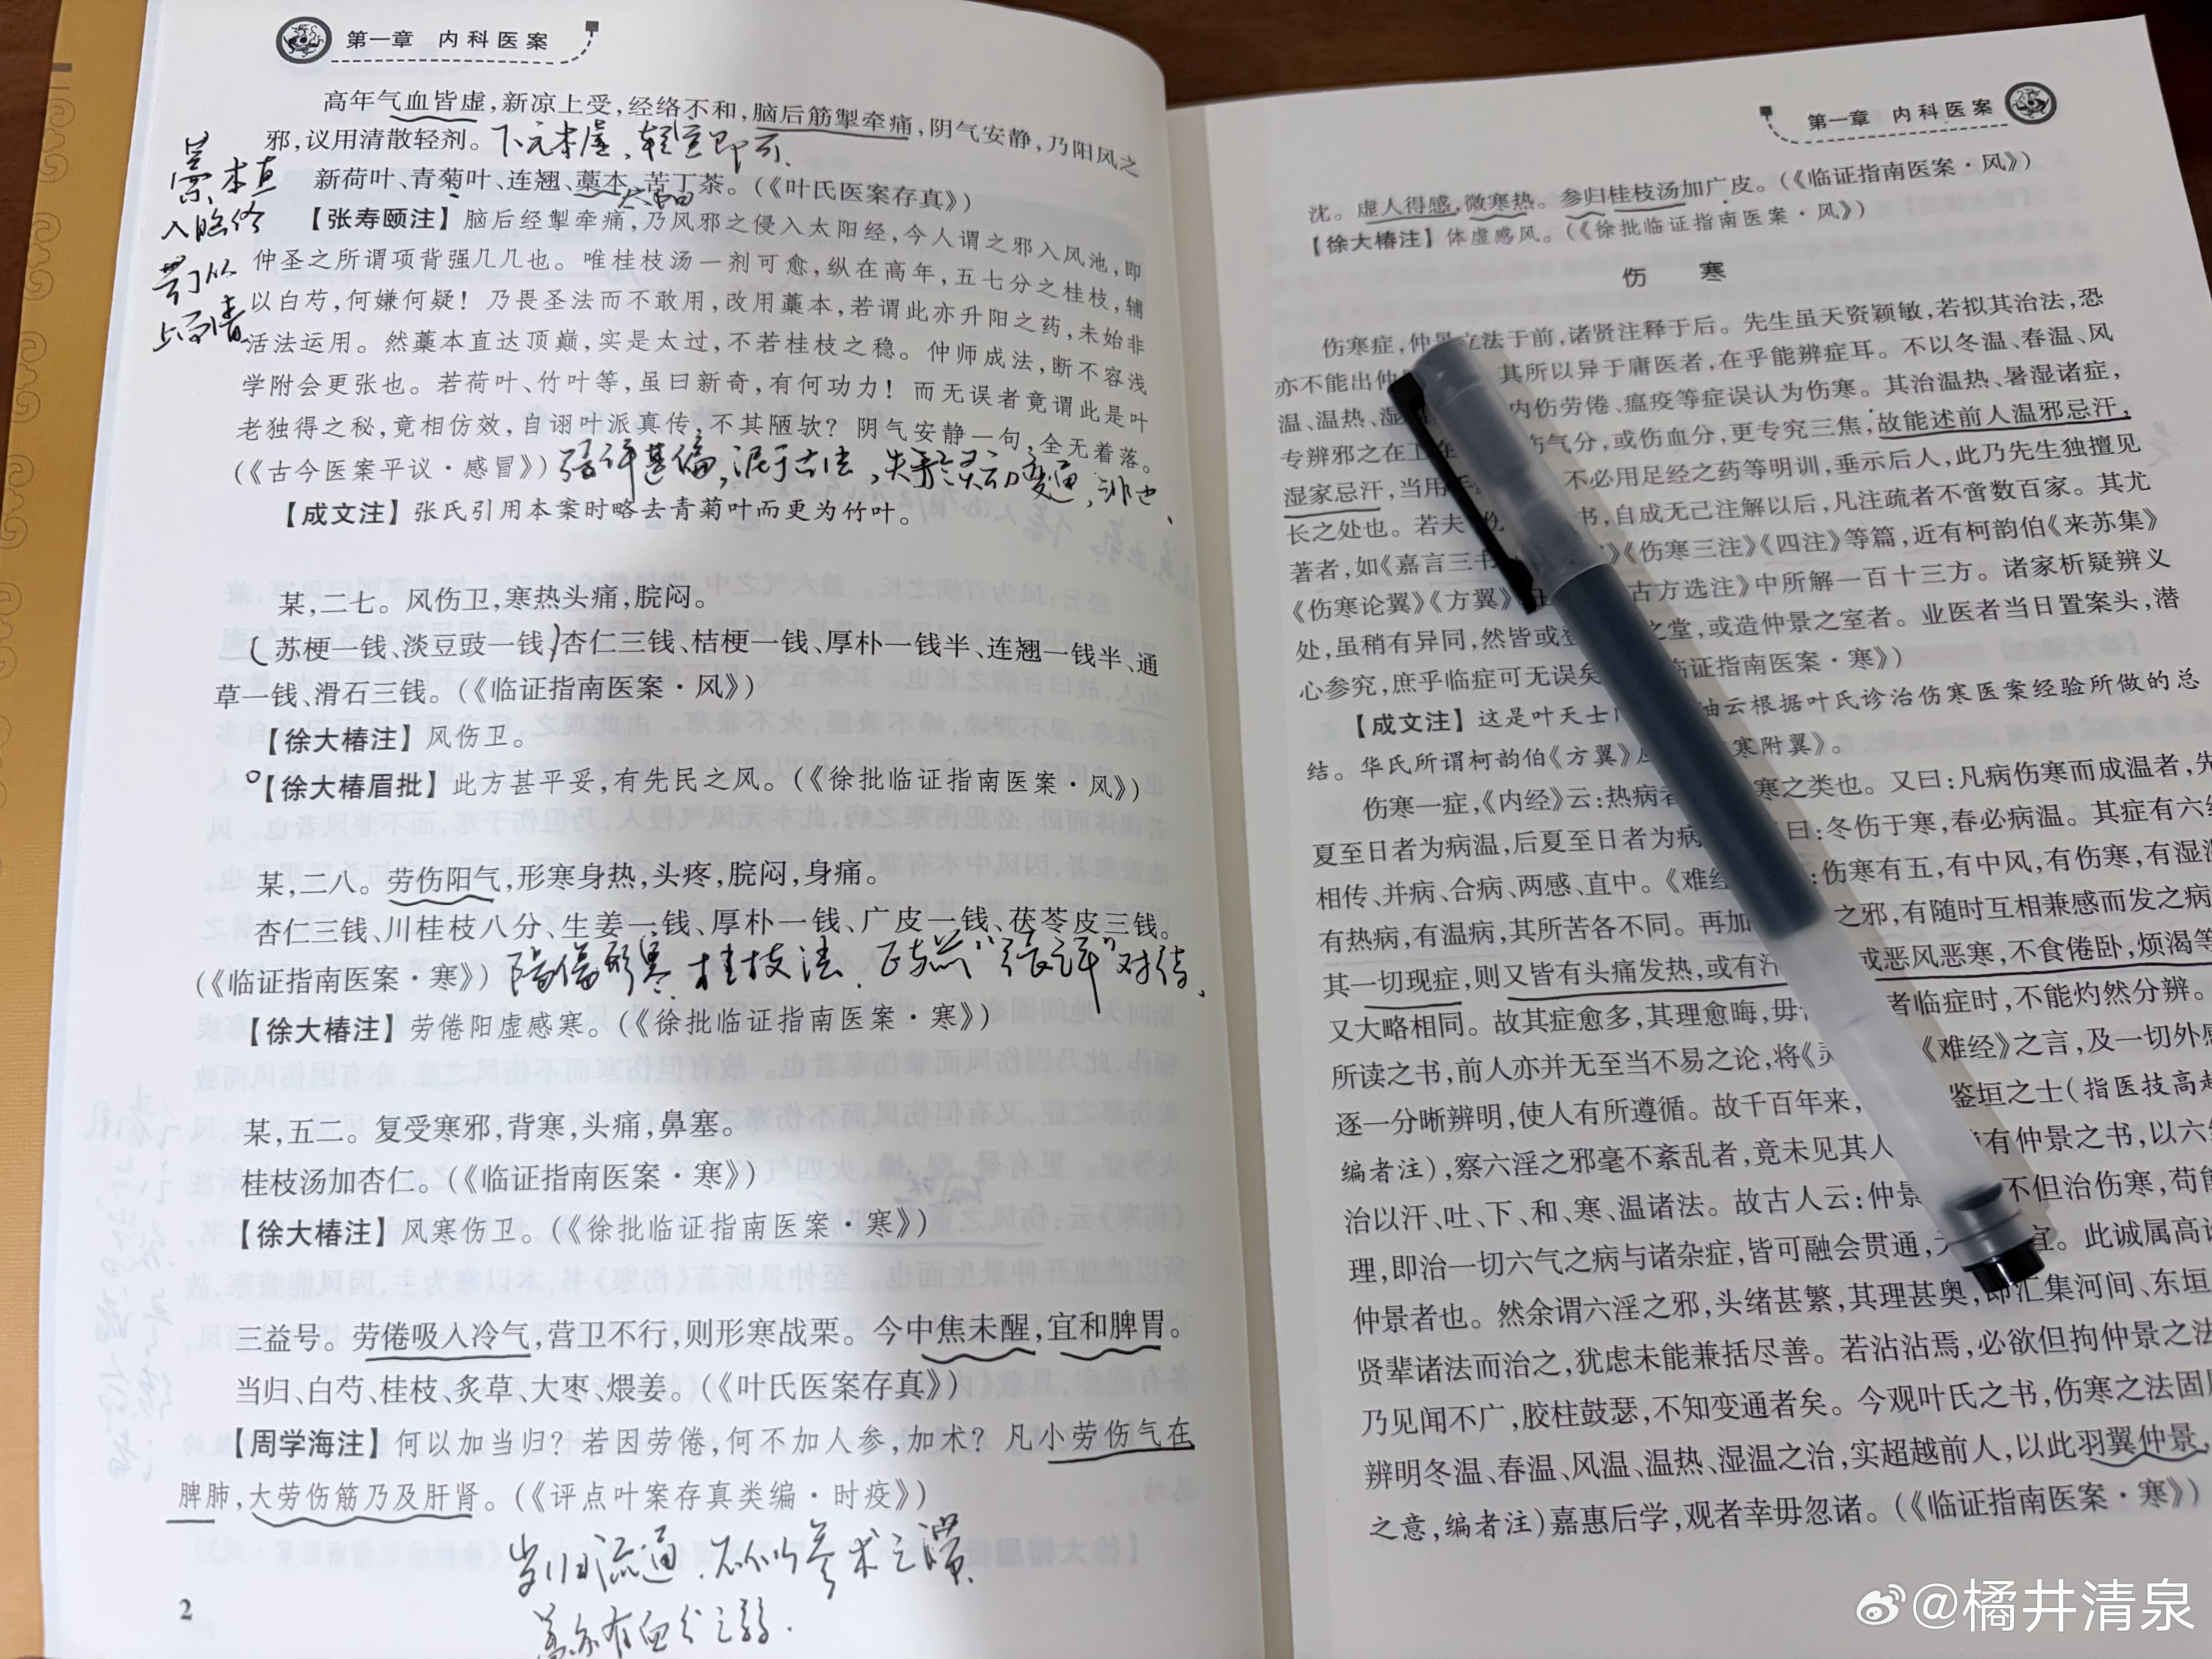 第一章 内科医案
高年气血皆虚，新凉上受，经络不和，脑后筋掣牵痛，阴气安静，乃阳风之
邪，议用清散轻剂。下元本虚，轻宣即可。
新荷叶、青菊叶、连翘、藁本、苦丁茶。（《叶氏医案存真》）
太阳
藁本直
入脑络
苦丁从
上而清
【张寿颐注】脑后经掣牵痛，乃风邪之侵入太阳经，今人谓之邪入风池，即
仲圣之所谓项背强几几也。唯桂枝汤一剂可愈，纵在高年，五七分之桂枝，辅
以白芍，何嫌何疑！乃畏圣法而不敢用，改用藁本，若谓此亦升阳之药，未始非
活法运用。然藁本直达顶巅，实是太过，不若桂枝之稳。仲师成法，断不容浅
学附会更张也。若荷叶、竹叶等，虽曰新奇，有何功力！而无误者竟谓此是叶
老独得之秘，竟相仿效，自诩叶派真传，不其陋欤？阴气安静一句，全无着落。
（《古今医案平议·感冒》）张评甚偏，泥于古法，失灵动变通，非也、
【成文注】张氏引用本案时略去青菊叶而更为竹叶。
某，二七。风伤卫，寒热头痛，脘闷。
苏梗一钱、淡豆豉一钱、杏仁三钱、桔梗一钱、厚朴一钱半、连翘一钱半、通
草一钱、滑石三钱。（《临证指南医案·风》）
【徐大椿注】风伤卫。
【徐大椿眉批】此方甚平妥，有先民之风。（《徐批临证指南医案·风》）
某，二八。劳伤阳气，形寒身热，头疼，脘闷，身痛。
杏仁三钱、川桂枝八分、生姜一钱、厚朴一钱、广皮一钱、茯苓皮三钱。
（《临证指南医案·寒》）阳伤形寒、桂枝法．正与“张评”对待、
【徐大椿注】劳倦阳虚感寒。（《徐批临证指南医案·寒》）
某，五二。复受寒邪，背寒，头痛，鼻塞。
桂枝汤加杏仁。（《临证指南医案·寒》）
【徐大椿注】风寒伤卫。（《徐批临证指南医案·寒》）
三益号。劳倦吸入冷气，营卫不行，则形寒战栗。今中焦未醒，宜和脾胃。
当归、白芍、桂枝、炙草、大枣、煨姜。（《叶氏医案存真》）
【周学海注】何以加当归？若因劳倦，何不加人参，加术？凡小劳伤气在
脾肺，大劳伤筋乃及肝肾。（《评点叶案存真类编·时疫》）
当归流通．不似参术之滞
盖亦有血分之弱．
2
第一章 内科医案
沈。虚人得感，微寒热。参归桂枝汤加广皮。（《临证指南医案·风》）
【徐大椿注】体虚感风。（《徐批临证指南医案·风》）
伤 寒
伤寒症，仲景立法于前，诸贤注释于后。先生虽天资颖敏，若拟其治法，恐
亦不能出仲 其所以异于庸医者，在乎能辨症耳。不以冬温、春温、风
温、温热、湿 内伤劳倦、瘟疫等症误认为伤寒。其治温热、暑湿诸症，
专辨邪之在 伤气分，或伤血分，更专究三焦，故能述前人温邪忌汗，
湿家忌汗，当用 不必用足经之药等明训，垂示后人，此乃先生独擅见
长之处也。若夫 书，自成无己注解以后，凡注疏者不啻数百家。其尤
著者，如《嘉言三书 》《伤寒三注》《四注》等篇，近有柯韵伯《来苏集》
《伤寒论翼》《方翼》 古方选注》中所解一百十三方。诸家析疑辨义
处，虽稍有异同，然皆或登 之堂，或造仲景之室者。业医者当日置案头，潜
心参究，庶乎临症可无误矣 临证指南医案·寒》）
【成文注】这是叶天士 岫云根据叶氏诊治伤寒医案经验所做的总
结。华氏所谓柯韵伯《方翼》 寒附翼》。
伤寒一症，《内经》云：热病者 寒之类也。又曰：凡病伤寒而成温者，先
夏至日者为病温，后夏至日者为病 曰：冬伤于寒，春必病温。其症有六经
相传、并病、合病、两感、直中。《难经 ：伤寒有五，有中风，有伤寒，有湿温
有热病，有温病，其所苦各不同。再加 之邪，有随时互相兼感而发之病
其一切现症，则又皆有头痛发热，或有汗 或恶风恶寒，不食倦卧，烦渴等
又大略相同。故其症愈多，其理愈晦，毋 者临症时，不能灼然分辨。
所读之书，前人亦并无至当不易之论，将《灵 《难经》之言，及一切外感
逐一分晰辨明，使人有所遵循。故千百年来， 鉴垣之士（指医技高超
编者注），察六淫之邪毫不紊乱者，竟未见其人 有仲景之书，以六经
治以汗、吐、下、和、寒、温诸法。故古人云：仲景 不但治伤寒，苟能
理，即治一切六气之病与诸杂症，皆可融会贯通， 宜。此诚属高论
仲景者也。然余谓六淫之邪，头绪甚繁，其理甚奥，即汇集河间、东垣
贤辈诸法而治之，犹虑未能兼括尽善。若沾沾焉，必欲但拘仲景之法
乃见闻不广，胶柱鼓瑟，不知变通者矣。今观叶氏之书，伤寒之法固
辨明冬温、春温、风温、温热、湿温之治，实超越前人，以此羽翼仲景，
之意，编者注）嘉惠后学，观者幸毋忽诸。（《临证指南医案·寒》）
@橘井清泉